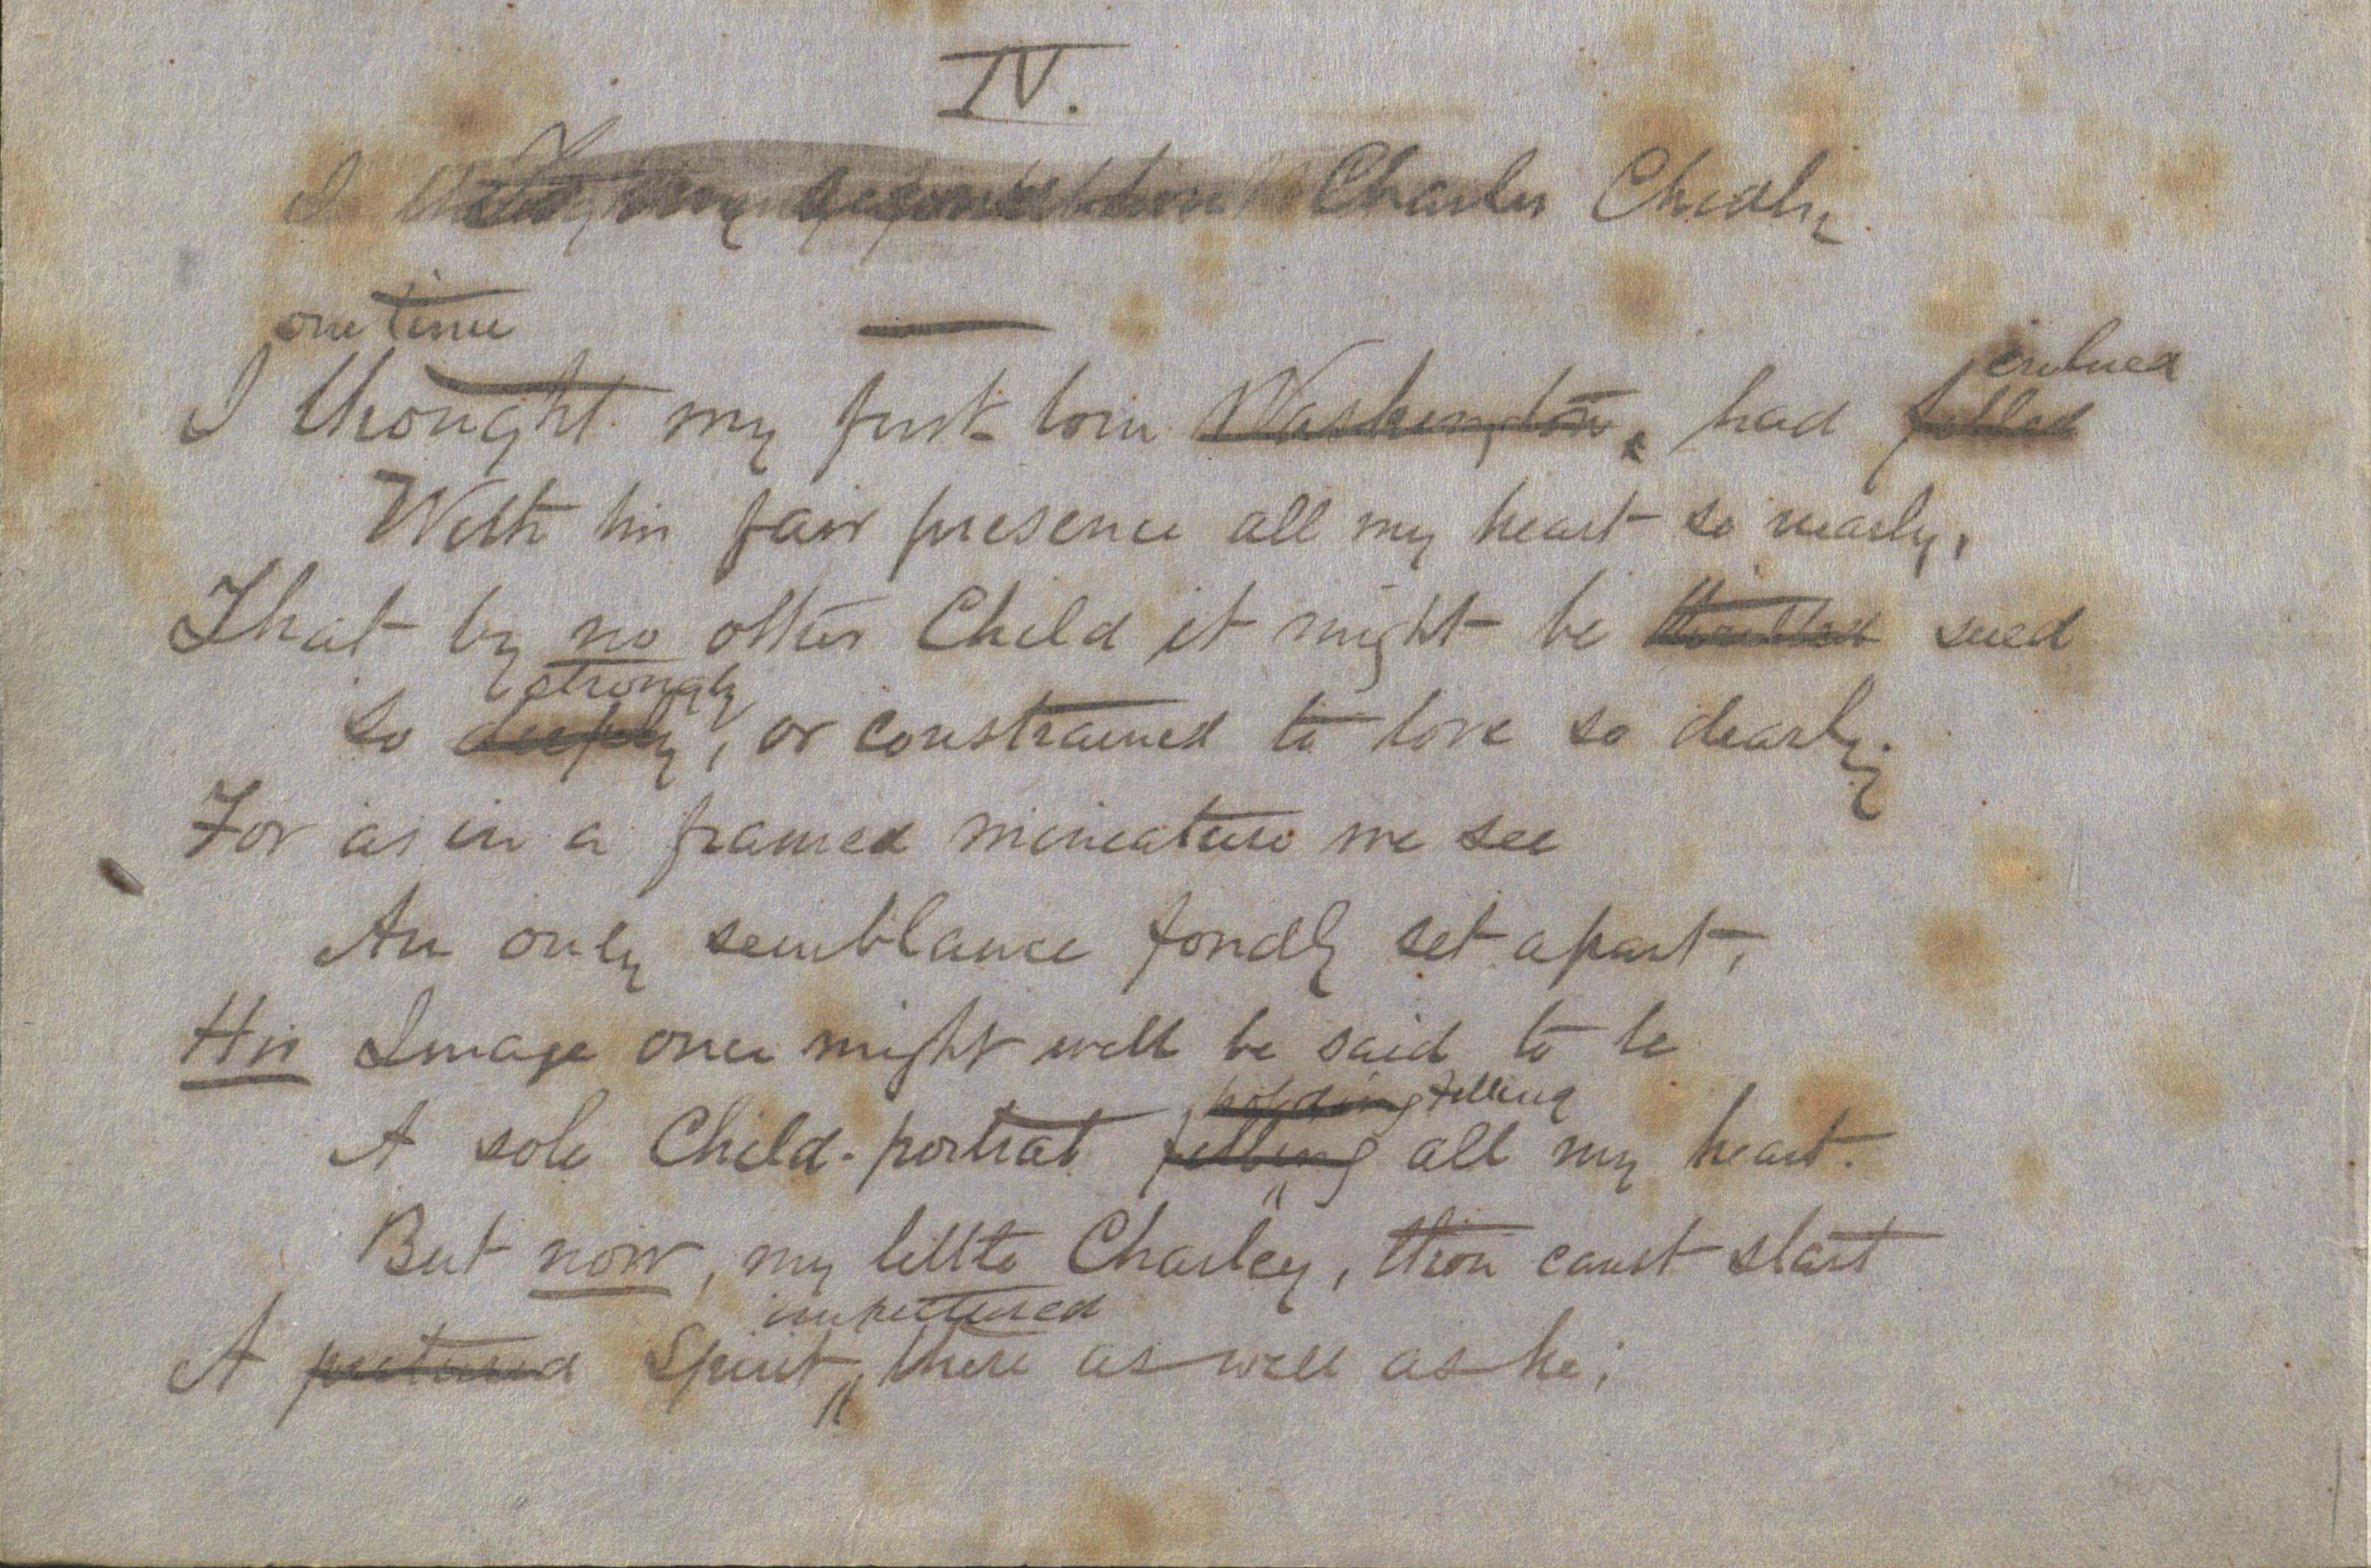 IV.
Charles Chidley
one time
I thought my first born Washington, had filled
imbued
With his fair presence all my heart so nearly,
That by no other Child it might be thrilled sued
strongly
So deeply, or constrained to love so dearly.
For as in a framed minicature we see
An only semblance fondly set apart,
His Image once might well be said to be
holding filling
A sole Child-portrat filling all my heart.
But now, my little Charley, thou canst start
impictured
A pictured Spirit, there as well as he;